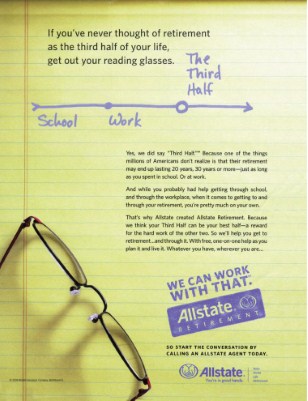 If you've never thought of retirement
as the third half of your life,
get out your reading glasses.
The
Third
Half
School
Work
Yes, we did say "Third Half." Because one of the things
millions of Americans don't realize is that their retirement
may end up lasting 20 years, 30 years or more—just as long
as you spent in school. Or at work.
And while you probably had help getting through school,
and through the workplace, when it comes to getting to and
through your retirement, you're pretty much on your own.
That's why Allstate created Allstate Retirement. Because
we think your Third Half can be your best half—a reward
for the hard work of the other two. So we'll help you get to
retirement...and through it. With free, one-on-one help as you
plan it and live it. Whatever you have, wherever you are...
WE CAN WORK
WITH THAT.
Allstate
RETIREMENT
SO START THE CONVERSATION BY
CALLING AN ALLSTATE AGENT TODAY.
Allstate
You're in good hands.